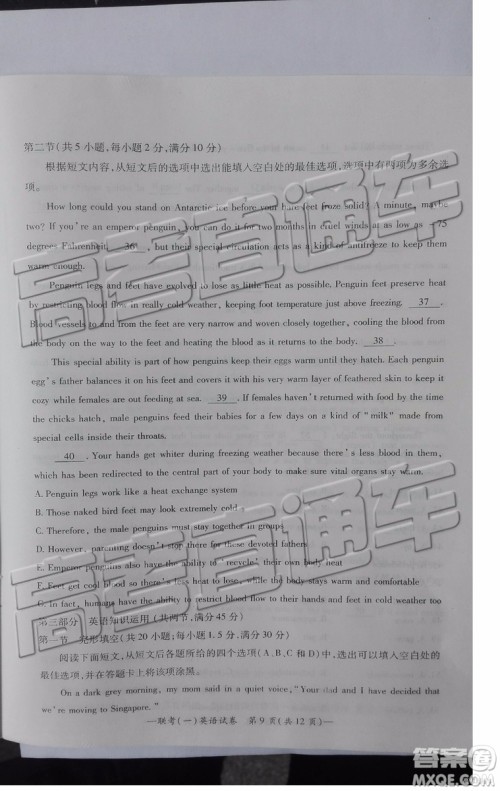 第二节(共5小题,每小题2分,满分10分)
根据短文内容,从短文后的选项中选出能填入空白处的最佳选项,选项中有两项为多余选
项。
How long could you stand on Antarctic ice before your bare feet froze solid? A minute, maybe
two? If you're an emperor penguin, you can do it for two months in cruel winds at as low as -75
degrees Fahrenheit. 36 , but their special circulation acts as a kind of antifreeze to keep them
warm enough.
Penguin legs and feet have evolved to lose as little heat as possible. Penguin feet preserve heat
by restricting blood flow in really cold weather, keeping foot temperature just above freezing. 37 .
Blood vessels to and from the feet are very narrow and woven closely together, cooling blood from
the body on the way to the feet and heating the blood as it returns to the body. 38 .
This special ability is part of how penguins keep their eggs warm until they hatch. Each penguin
egg's father balances it on his feet and covers it with his very warm layer of feathered skin to keep it
warm as females are out feeding at sea. 39 . If females haven't returned with food by the time
the chicks hatch, male penguins feed their babies for a few days on a kind of "milk" made from
special cells inside their throats.
40 . Your hands get whiter during freezing weather because there's less blood in them,
which has been redirected to the central part of your body to make sure vital organs stay warm.
A. Penguin legs work like a heat exchange system
B. Those naked bird feet may look extremely cold
C. Therefore, the male penguins must stay together in groups
D. However, parenting doesn't stop there for these devoted fathers
E. Emperor penguins also have the ability to recycle their own body heat
F. Feet get cool blood so there's less heat to lose, while the body stays warm and comfortable
G. In fact, humans have the ability to restrict blood flow to their hands and feet in cold weather too
第三部分 英语知识运用(共两节,满分45分)
第一节 完形填空(共20小题;每小题1.5分,满分30分)
阅读下面短文,从短文后各题所给的四个选项(A、B、C和D)中,选出可以填入空白处的
最佳选项,并在答题卡上将该项涂黑。
On a dark grey morning, my mom said in a quiet voice, "Your dad and I have decided that
we're moving to Singapore."
—联考(一)英语试卷 第9页(共12页)—
高考直通车
高考直通车
高考直通车
答案圈
MXQE.COM